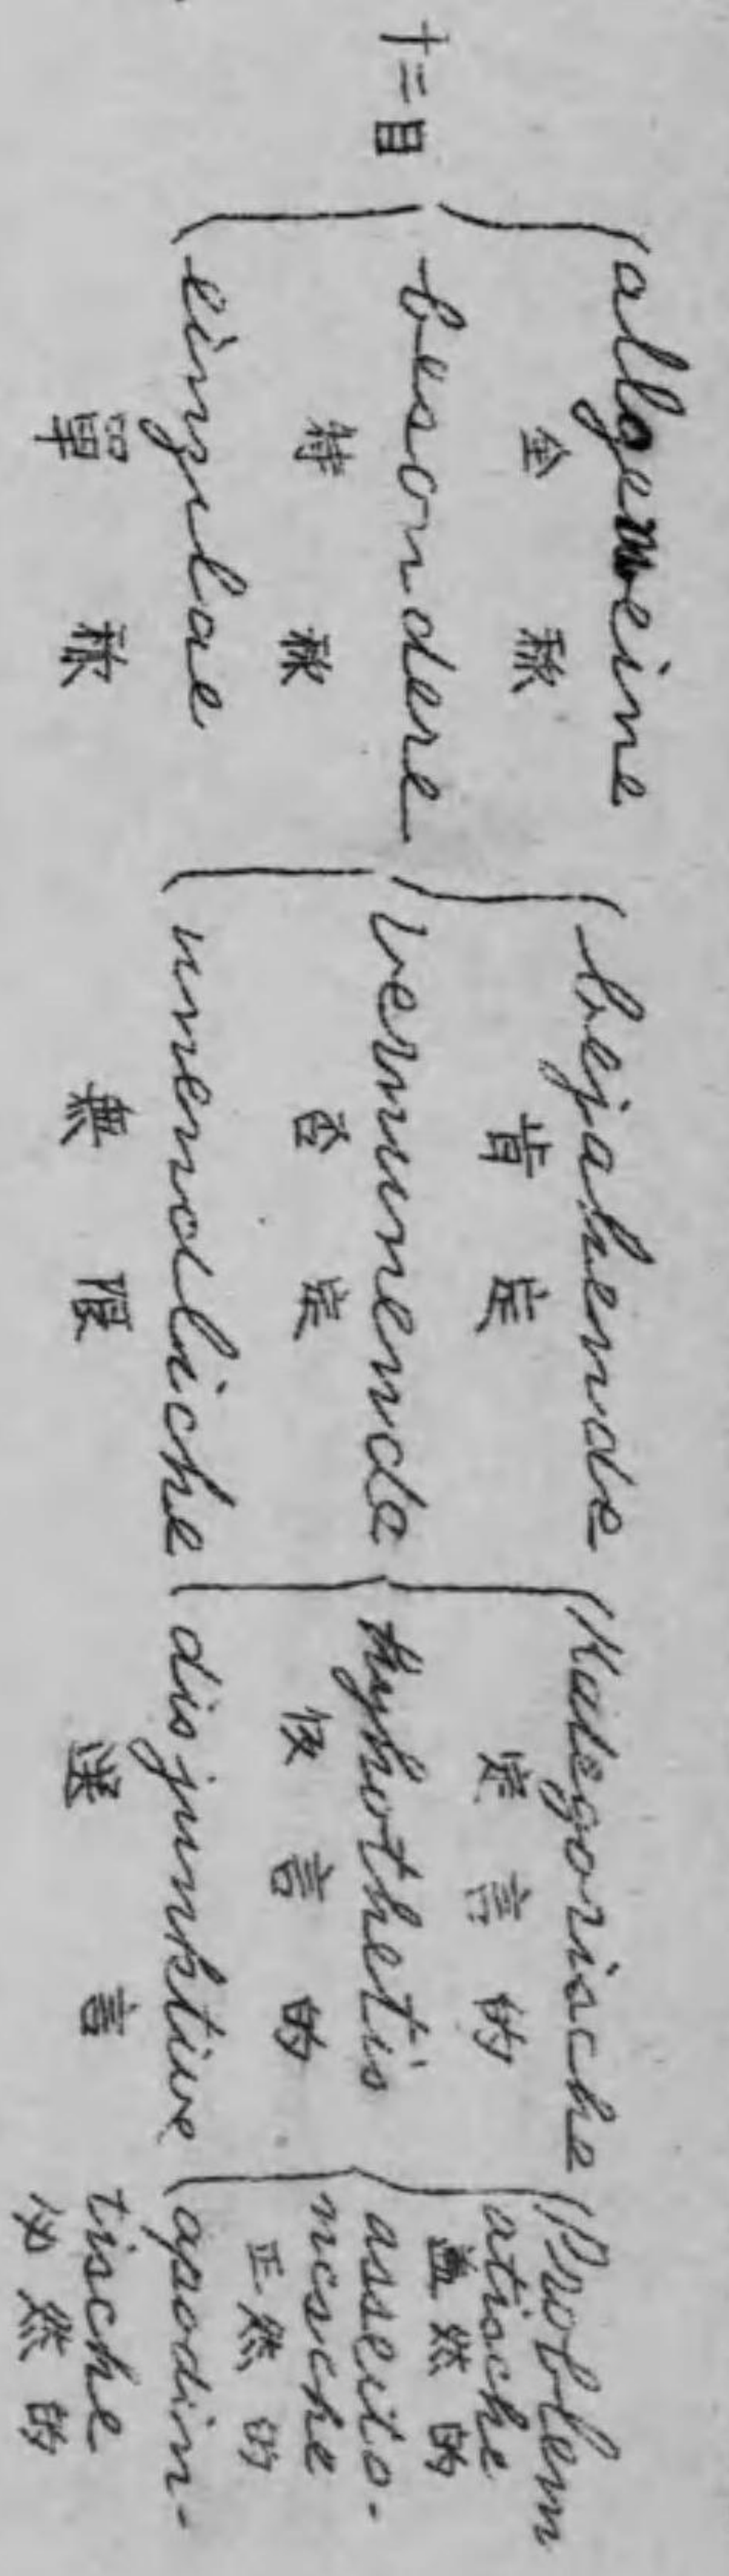 十二目
allgemeine
全称
besondere
特称
einzelne
單称
bejahende
肯定
verneinende
否定
unendliche
無限
Kategorische
定言的
hypothetis
仮言的
disjunktive
選言
Problem
atische
蓋然的
asserto-
rische
正然的
apodik-
tische
必然的